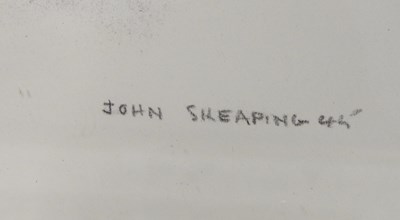 JOHN SKEAPING 45